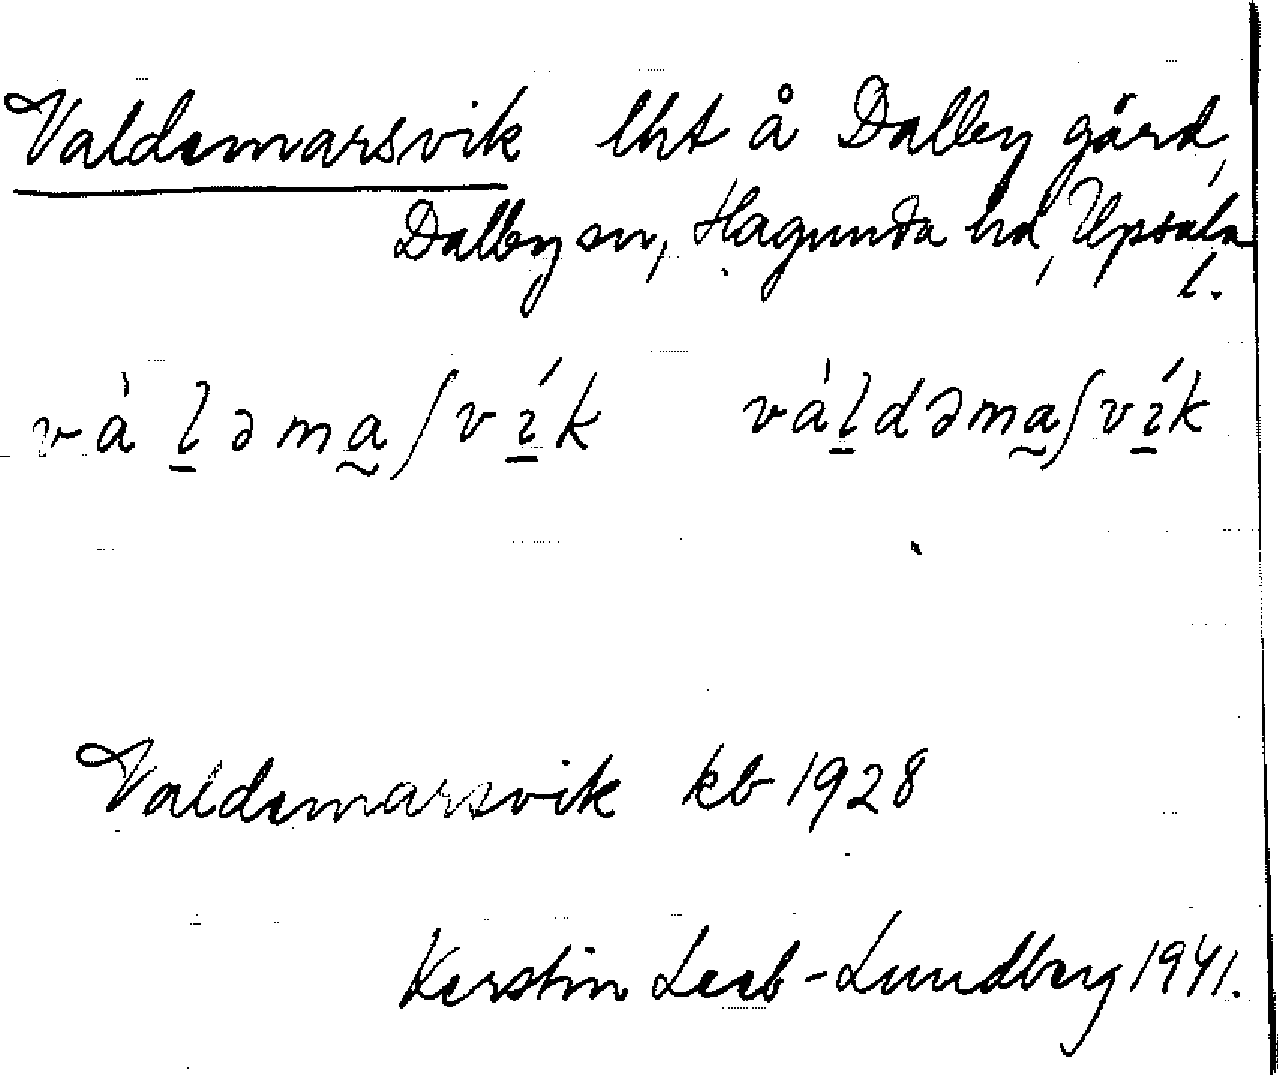 Valdemarsvik lht å Dalby gård,
Dalby sn, Hagunda hd, Upsala
l.
và l̲əma̰ʃvı̲́k và l̲dəma̰ʃvı̲́k
Valdemarsvik kb 1928
Kerstin Leeb-Lundberg 1941.